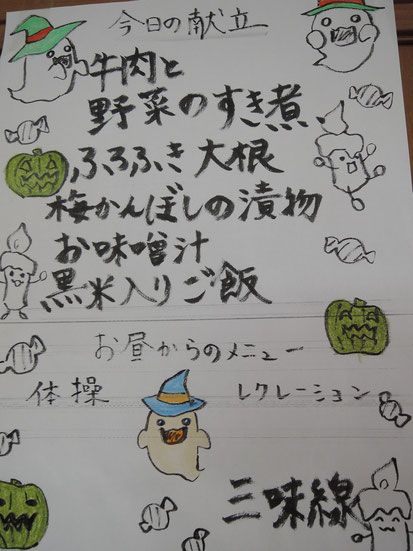 今日の献立
牛肉と
野菜のすき煮、
ふろふき大根
梅かんぼしの漬物
お味噌汁
黒米入りご飯
お昼からのメニュー
体操 レクレーション
三味線